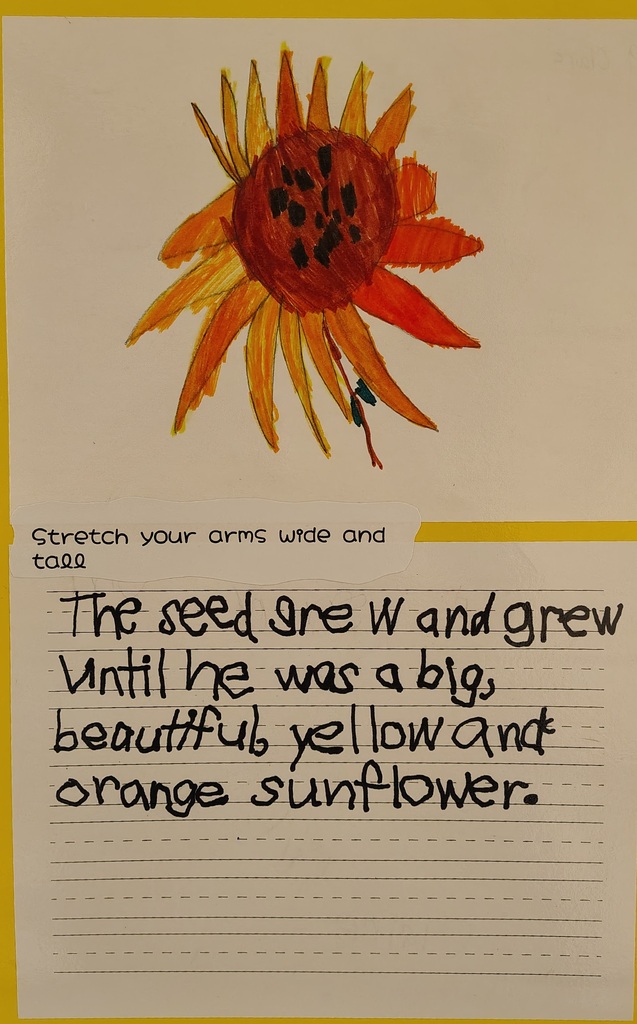 Stretch your arms wide and
tall
The seed grew and grew
Until he was a big,
beautiful, yellow and
orange sunflower.